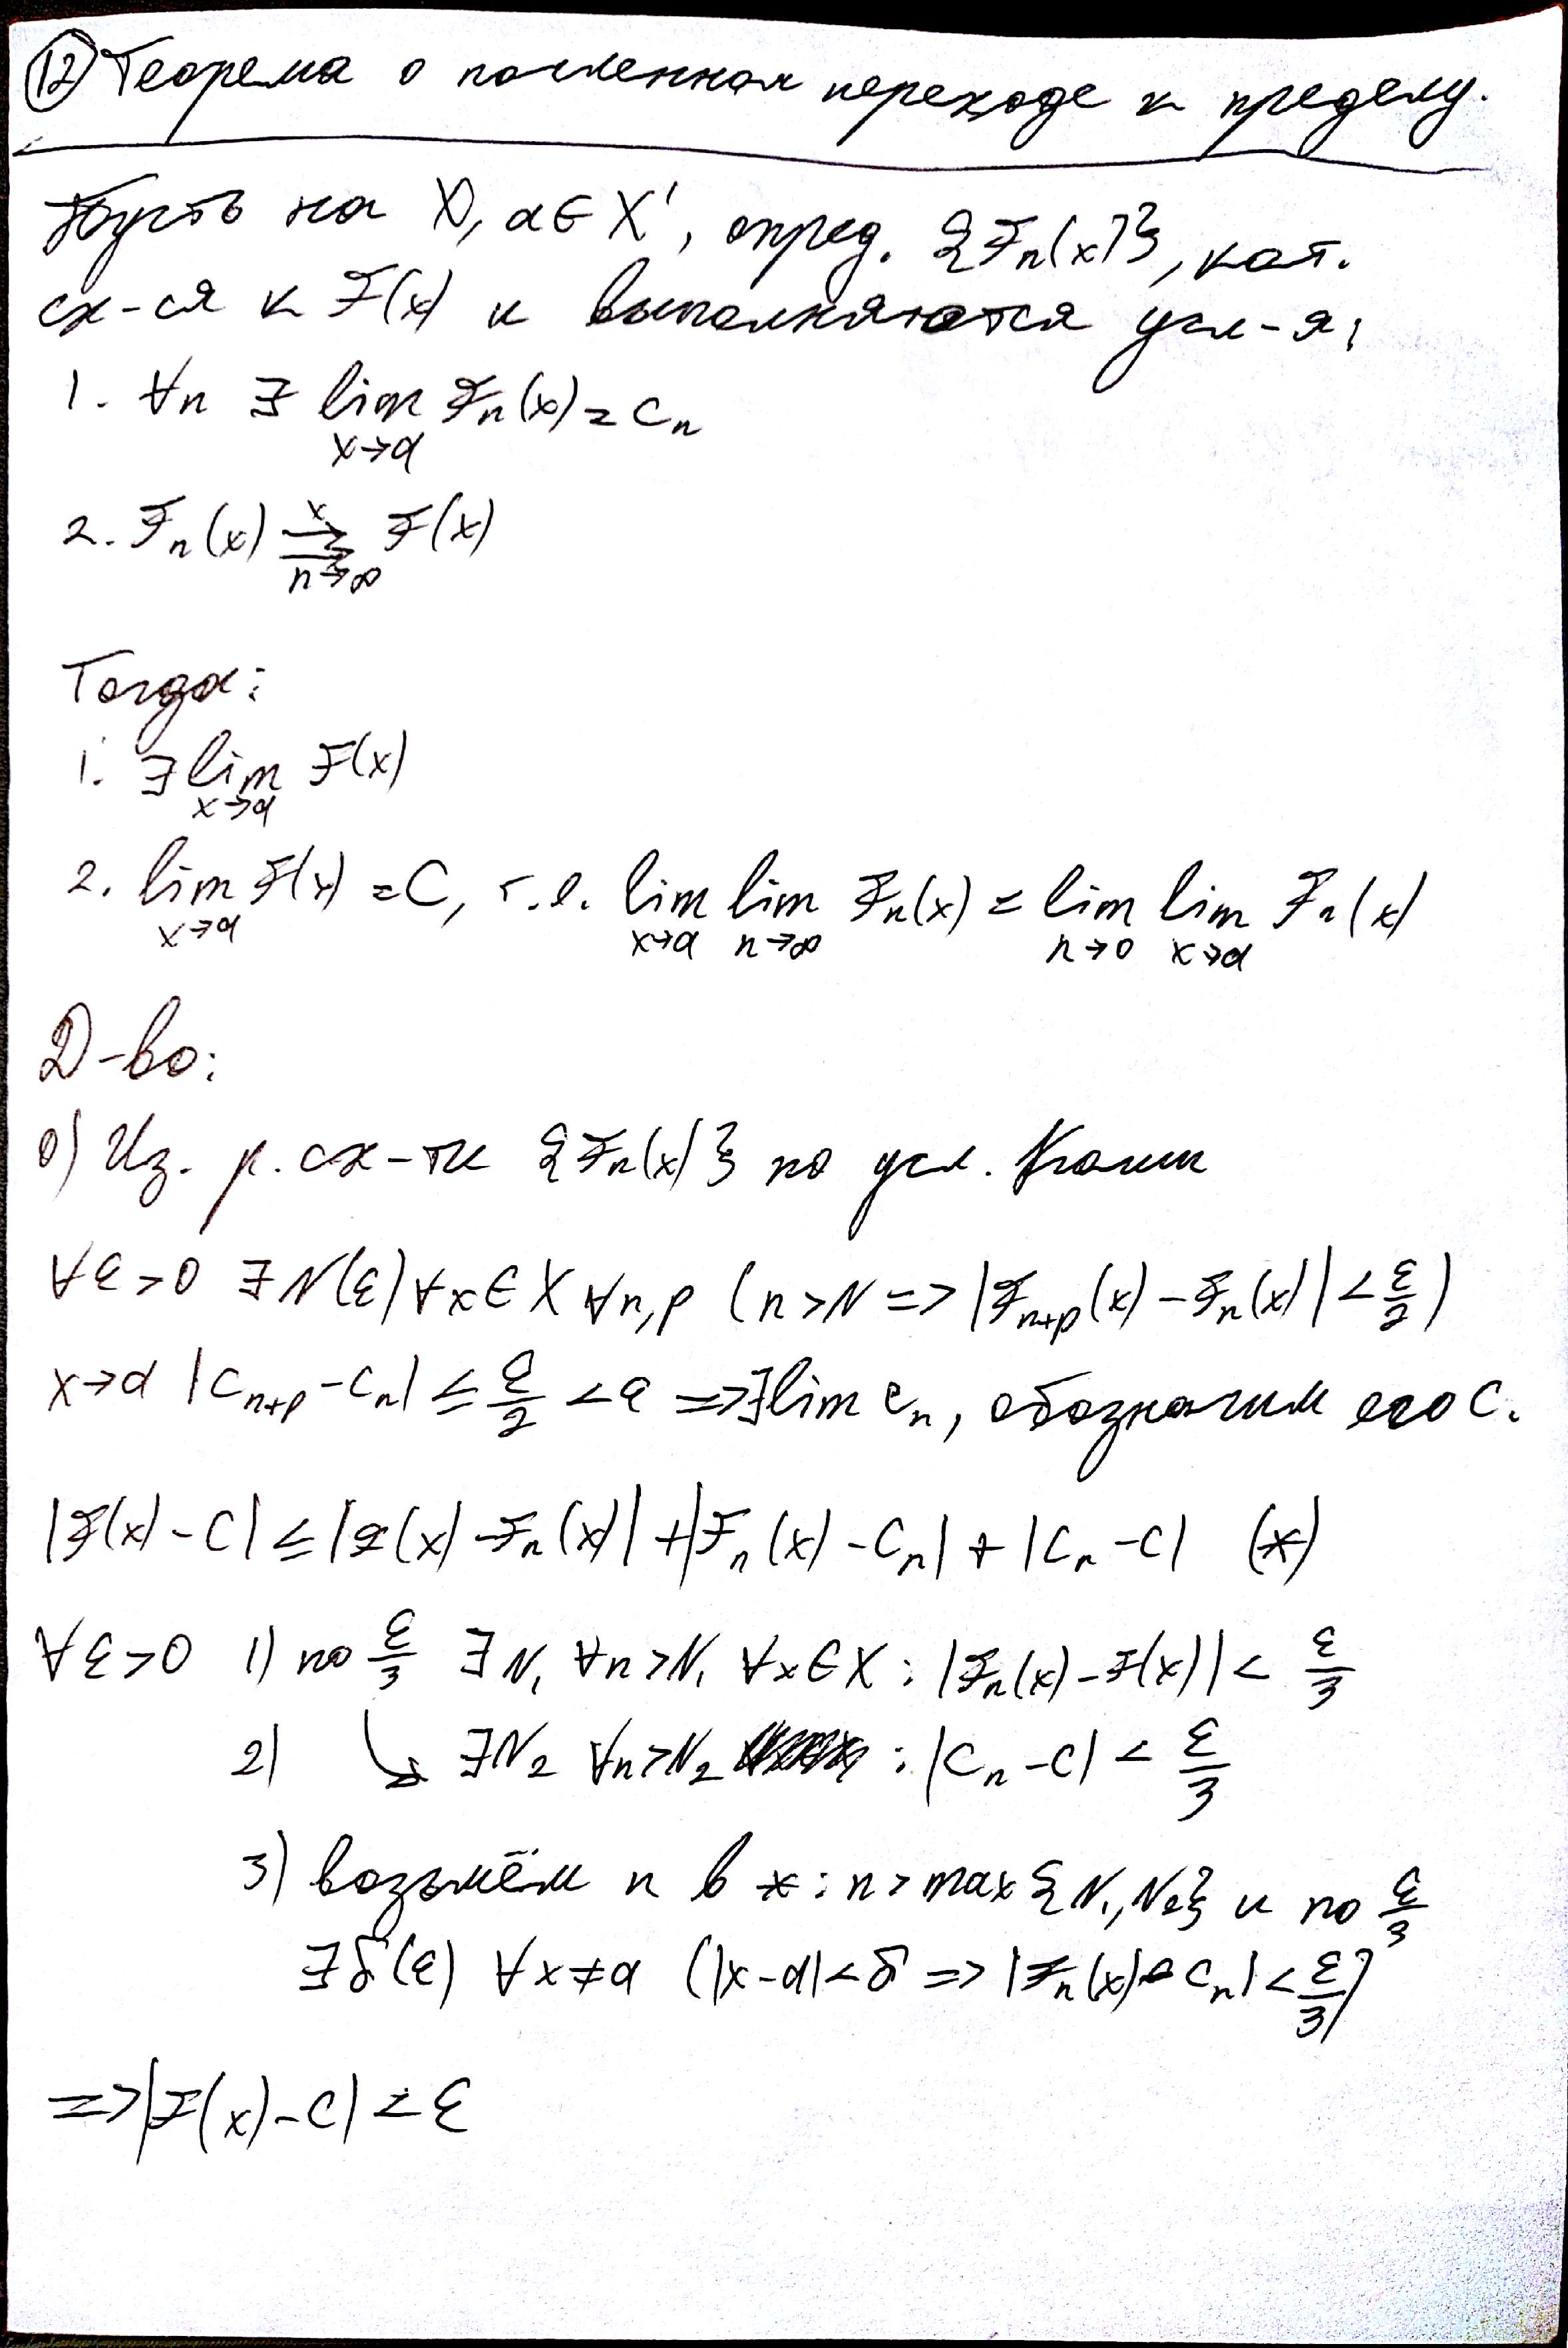 (12) Теорема о почленном переходе к пределу.
Пусть на X, a ∈ X', опред. {Fₙ(x)}, кот.
сх-ся к F(x) и выполняются усл-я:
1. ∀n ∃ lim_{x→a} Fₙ(x) = cₙ
2. Fₙ(x) ⇉^{X}_{n→∞} F(x)
Тогда:
1. ∃ lim_{x→a} F(x)
2. lim_{x→a} F(x) = C, т.е. lim_{x→a} lim_{n→∞} Fₙ(x) = lim_{n→0} lim_{x→a} Fₙ(x)
Д-во:
0) Из. р. сх-ти {Fₙ(x)} по усл. Коши
∀ε>0 ∃N(ε) ∀x∈X ∀n,p (n>N => |Fₙ₊ₚ(x) - Fₙ(x)| < ε/2)
x→a |cₙ₊ₚ - cₙ| ≤ ε/2 < ε => ∃ lim cₙ, обозначим его C.
|F(x) - C| ≤ |F(x) - Fₙ(x)| + |Fₙ(x) - Cₙ| + |Cₙ - C| (*)
∀ε>0 1) по ε/3 ∃N₁ ∀n>N₁ ∀x∈X : |Fₙ(x) - F(x)| < ε/3
2) ↘ ∃N₂ ∀n>N₂ : |Cₙ - C| < ε/3
3) возьмём n в * : n > max{N₁, N₂} и по ε/3
∃δ(ε) ∀x≠a (|x-a|<δ => |Fₙ(x) - Cₙ| < ε/3)
=> |F(x) - C| < ε